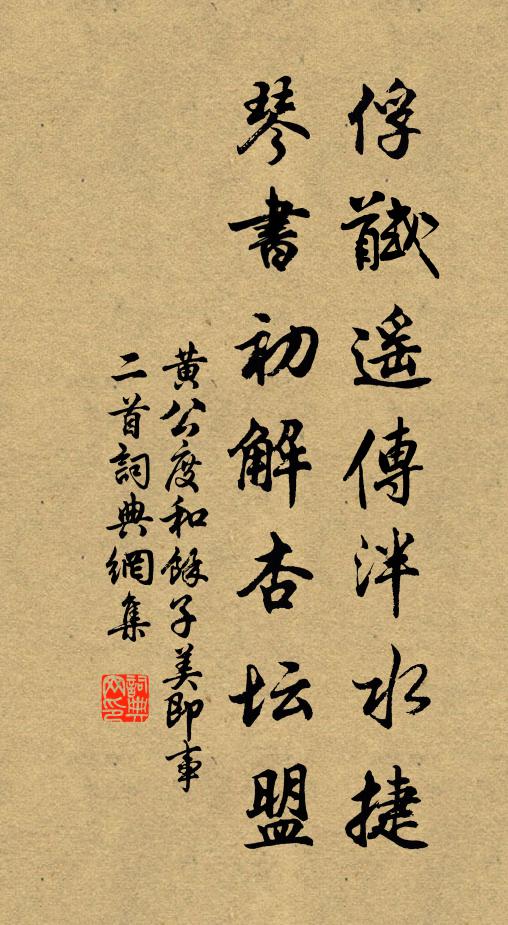 俘馘遥傳泮水捷
琴書初解杏坛盟
黃公度和餘子美即事
二首詞典網集
詞典網印